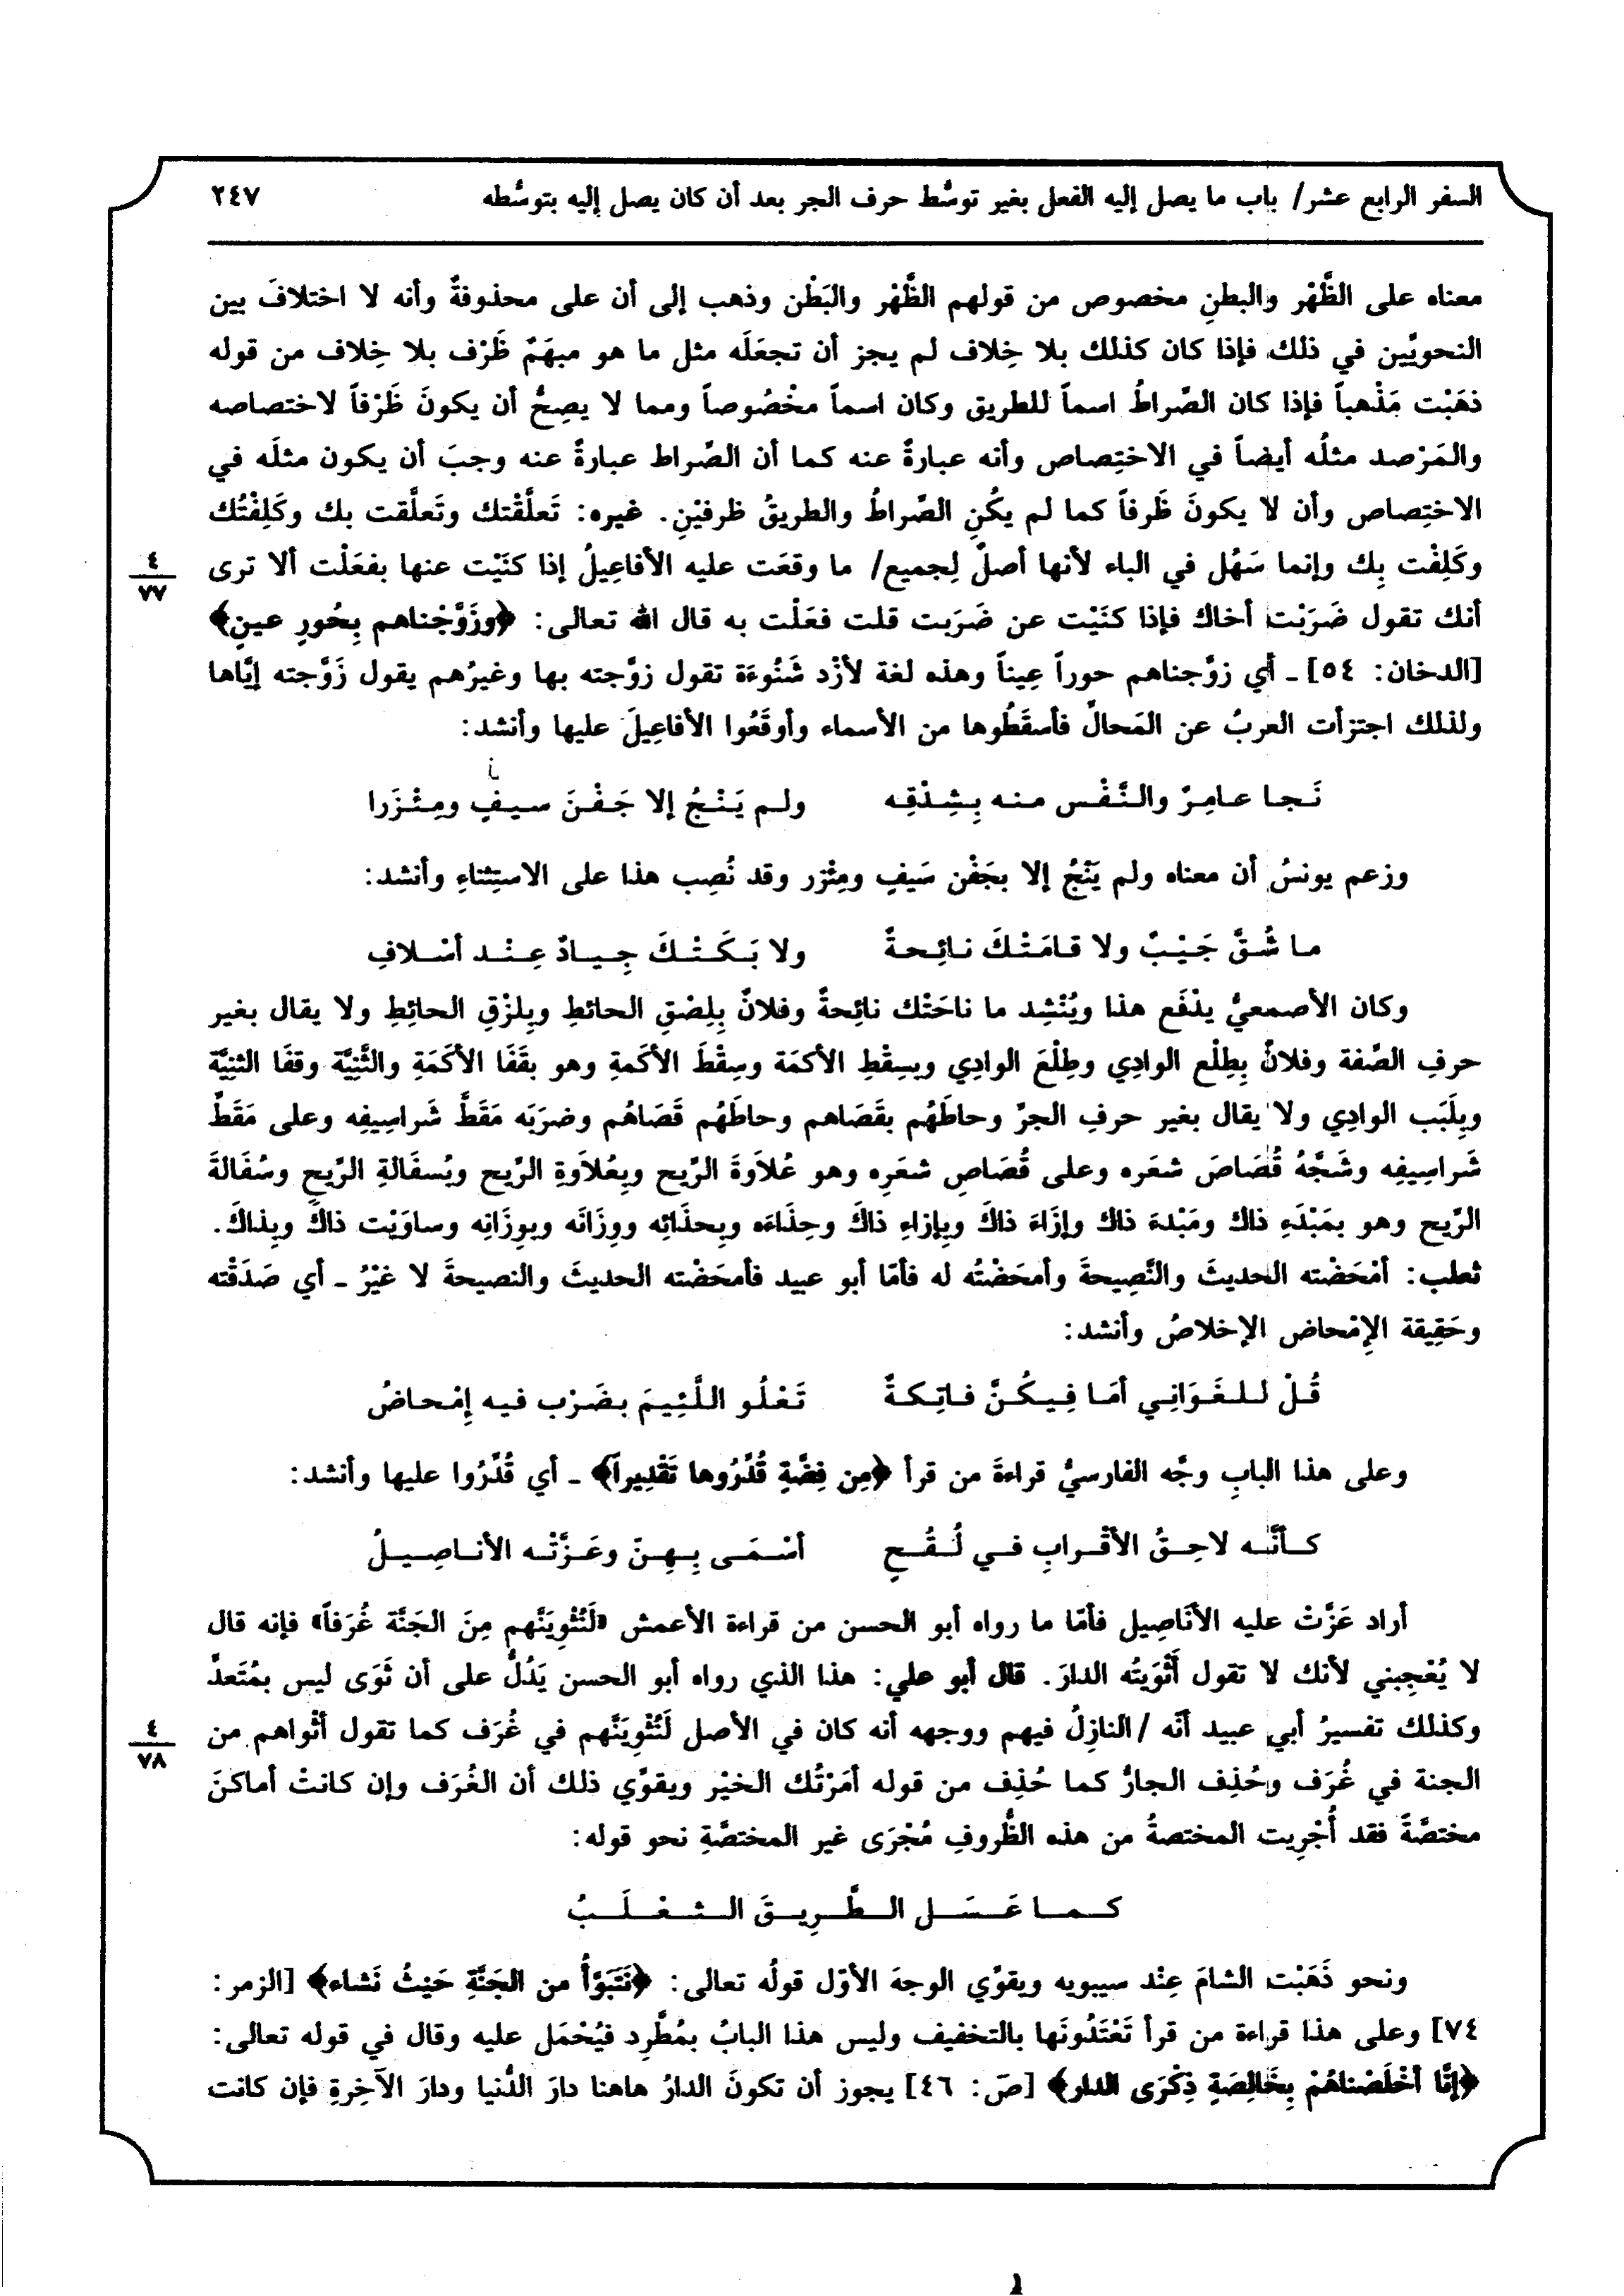 السفر الرابع عشر/ باب ما يصل إليه الفعل بغير توسُّط حرف الجر بعد أن كان يصل إليه بتوسُّطه ٢٤٧
معناه على الظَّهْر والبطنِ مخصوص من قولهم الظَّهْر والبَطْن وذهب إلى أن على محذوفةٌ وأنه لا اختلافَ بين
النحويِّين في ذلك فإذا كان كذلك بلا خِلاف لم يجز أن تجعَلَه مثل ما هو مبهَمٌ ظَرْف بلا خِلاف من قوله
ذهَبْت مَذْهباً فإذا كان الصِّراطُ اسماً للطريق وكان اسماً مخْصُوصاً ومما لا يصِحُّ أن يكونَ ظَرْفاً لاختصاصه
والمَرْصد مثلُه أيضاً في الاختِصاص وأنه عبارةٌ عنه كما أن الصِّراط عبارةٌ عنه وجبَ أن يكون مثلَه في
الاختِصاص وأن لا يكونَ ظَرفاً كما لم يكُنِ الصِّراطُ والطريقُ ظرفيْنِ. غيره: تَعلَّقْتك وتَعلَّقت بك وكَلِفْتُك
وكَلِفْت بِك وإنما سَهُل في الباء لأنها أصلٌ لِجميع/ ما وقعَت عليه الأفاعِيلُ إذا كنَيْت عنها بفعَلْت ألا ترى
٤
٧٧
أنك تقول ضَرَبْت أخاك فإذا كنَيْت عن ضَرَبت قلت فعَلْت به قال الله تعالى: ﴿وزَوَّجْناهم بِحُورٍ عينٍ﴾
[الدخان: ٥٤] ـ أي زوَّجناهم حوراً عِيناً وهذه لغة لأزْد شَنُوءَة تقول زوَّجته بها وغيرُهم يقول زَوَّجته إيَّاها
ولذلك اجتزأت العربُ عن المَحالِّ فأسقَطُوها من الأسماء وأوقَعُوا الأفاعِيلَ عليها وأنشد:
نَجا عامِرٌ والنَّفْس منه بِشِدْقِه ولم يَنْجُ إلا جَفْنَ سيفٍ ومِئْزَرا
وزعم يونسُ أن معناه ولم يَنْجُ إلا بجَفْن سَيفٍ ومِئزر وقد نُصِب هذا على الاستِثناءِ وأنشد:
ما شُقَّ جَيْبٌ ولا قامَتْكَ نائِحةٌ ولا بَكَتْكَ جِيادٌ عِنْد أسْلافِ
وكان الأصمعيُّ يدْفَع هذا ويُنْشِد ما ناحَتْك نائِحةٌ وفلانٌ بِلِصْقِ الحائطِ وبِلِزْقِ الحائِطِ ولا يقال بغير
حرفِ الصِّفة وفلانٌ بِطِلْع الوادِي وطِلْعَ الوادِي وبسِقْطِ الأكمَة وسِقْطَ الأكَمةِ وهو بقَفَا الأكَمَةِ والثَّنِيَّة وقفَا الثنِيَّة
وبِلَبَب الوادِي ولا يقال بغير حرفِ الجرِّ وحاطَهُم بقَصَاهم وحاطَهُم قَصَاهُم وضرَبَه مَقَطَّ شَراسِيفِه وعلى مَقَطِّ
شَراسِيفِه وشَجَّهُ قُصَاصَ شعَره وعلى قُصَاصِ شعَرِه وهو عُلاَوةَ الرِّيح وبِعُلاَوةِ الرِّيح وبُسفَالةِ الرِّيحِ وسُفَالةَ
الرِّيح وهو بمَبْدَءِ ذاك ومَبْدءَ ذاك وإزَاءَ ذاكَ وبِإزاءِ ذاكَ وحِذَاءَه وبِحذَائِه ووِزَانَه وبوِزَانِه وساوَيْت ذاكَ وبِذاكَ.
ثعلب: أمْحَضْته الحديثَ والنَّصِيحةَ وأمحَضْتُه له فأمّا أبو عبيد فأمحَضْته الحديثَ والنصيحةَ لا غيْرُ ـ أي صَدَقْته
وحَقِيقة الإمْحاض الإخلاصُ وأنشد:
قُلْ للغَوَانِي أمَا فِيكُنَّ فاتِكةٌ تَعْلُو اللَّئِيمَ بضَرْب فيه إِمْحاضُ
وعلى هذا البابِ وجَّه الفارسيُّ قراءةَ من قرأ ﴿مِن فِضَّةٍ قُدِّرُوها تَقْدِيراً﴾ ـ أي قُدِّرُوا عليها وأنشد:
كأنَّه لاحِقُ الأقْرابِ في لُقُحٍ أسْمَى بِهِنَ وعَزَّتْه الأناصِيلُ
أراد عَزَّتْ عليه الأنَاصِيل فأمّا ما رواه أبو الحسن من قراءة الأعمش «لَنُثْوِيَنَّهم مِنَ الجَنَّة غُرَفاً» فإنه قال
لا يُعْجِبني لأنك لا تقول أَثْوَيتُه الدارَ. قال أبو علي: هذا الذي رواه أبو الحسن يَدُلُّ على أن ثَوَى ليس بمُتَعدٍّ
وكذلك تفسيرُ أبي عبيد أنَّه /النازِلُ فيهم ووجهه أنه كان في الأصل لَنُثْوِيَنَّهم في غُرَف كما تقول أثْواهم من
٤
٧٨
الجنة في غُرَف وحُذِف الجارُّ كما حُذِف من قوله أمَرْتُك الخيْر ويقوِّي ذلك أن الغُرَف وإن كانتْ أماكنَ
مختصَّةً فقد أُجْرِيت المختصةُ من هذه الظُّروفِ مُجْرَى غير المختصَّةِ نحو قوله:
كما عَسَل الطَّرِيقَ الثعْلَبُ
ونحو ذَهَبْت الشامَ عِنْد سيبويه ويقوِّي الوجهَ الأوّل قولُه تعالى: ﴿نَتَبَوَّأُ من الجَنَّةِ حَيْثُ نَشاء﴾ [الزمر:
٧٤] وعلى هذا قراءة من قرأ تَعْتَدُونَها بالتخفيف وليس هذا البابُ بمُطَّرِد فيُحْمَل عليه وقال في قوله تعالى:
﴿إنَّا أخْلَصْناهُمْ بِخَالِصَةٍ ذِكْرَى الدار﴾ [صَ: ٤٦] يجوز أن تكونَ الدارُ هاهنا دارَ الدُّنيا ودارَ الآخِرةِ فإن كانت